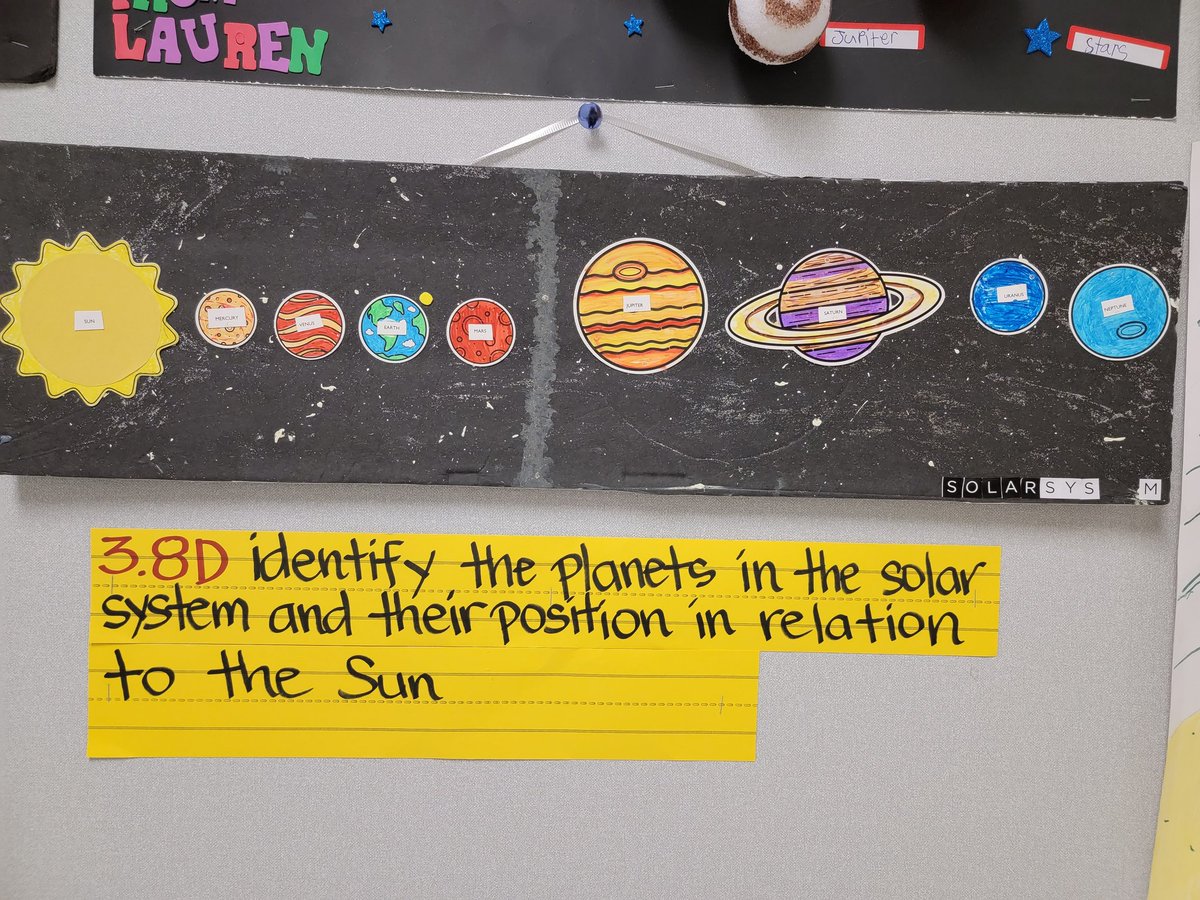 LAUREN
Jupiter
Stars
SUN
MERCURY
VENUS
EARTH
MARS
JUPITER
SATURN
URANUS
NEPTUNE
SOLARSYS M
3.8D identify the planets in the solar
system and their position in relation
to the Sun